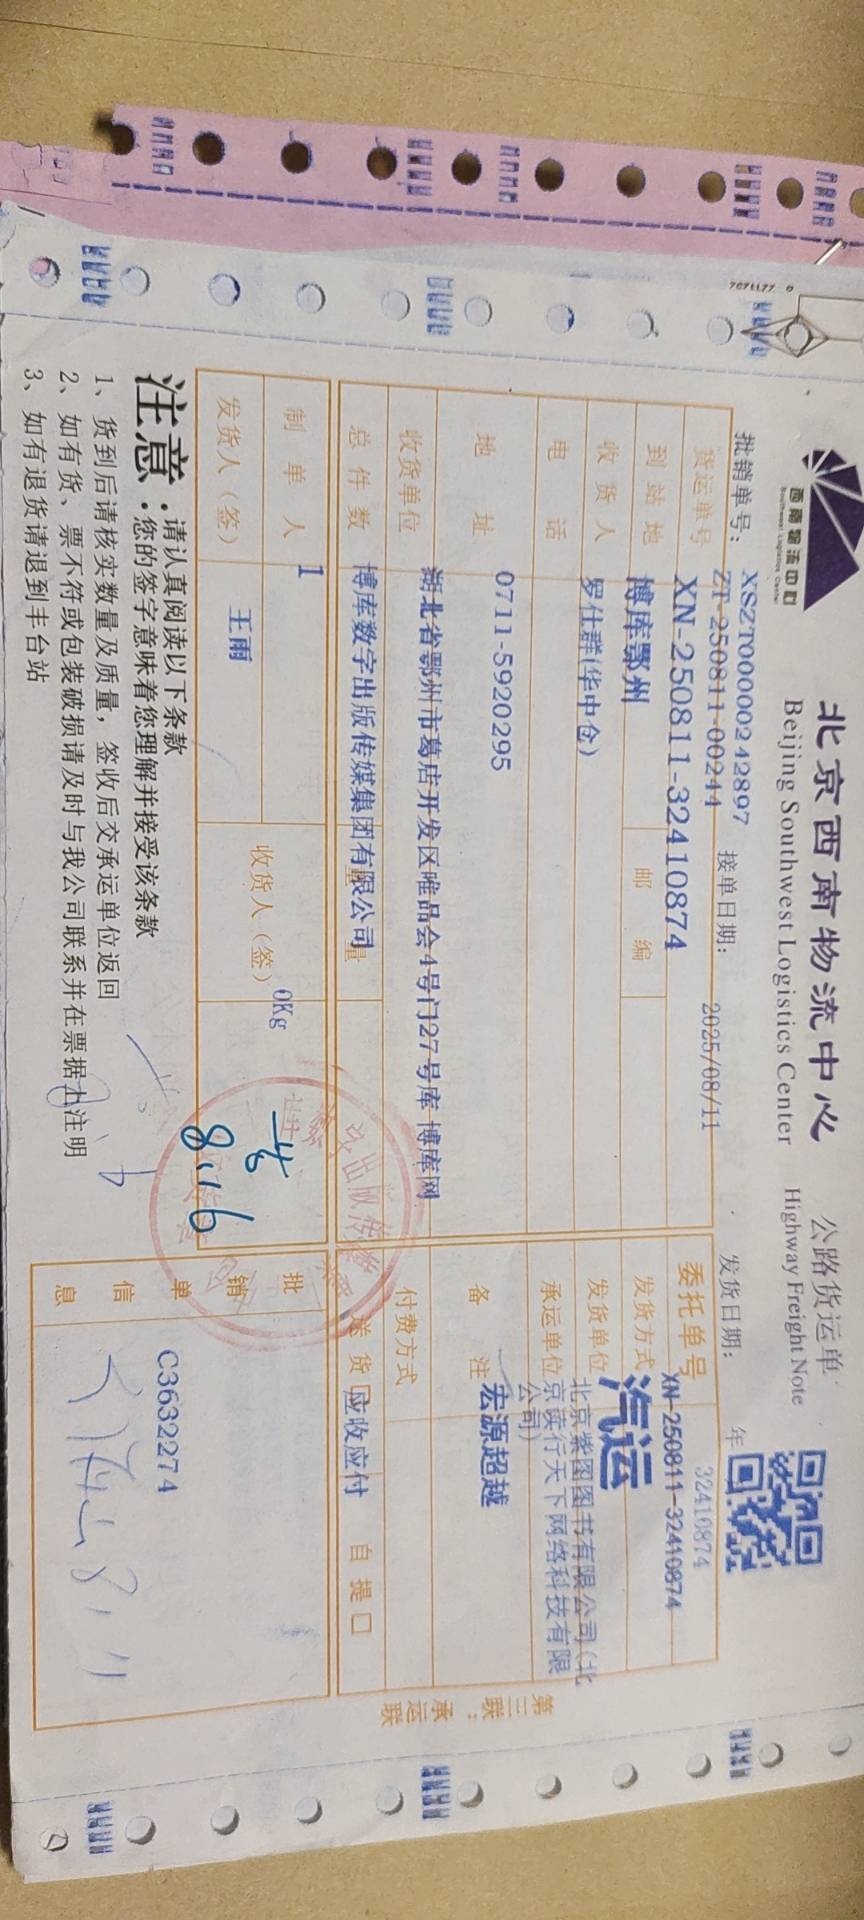 西南物流中心
Southwest Logistics Center
北京西南物流中心
Beijing Southwest Logistics Center
公路货运单
Highway Freight Note
批销单号：
XSZT00000242897
ZT-250811-00244
接单日期：
2025/08/11
发货日期：
年
货运单号
XN-250811-32410874
委托单号
32410874
XN-250811-32410874
到站地
博库鄂州
邮编
发货方式
汽运
收货人
罗仕群(华中仓)
发货单位
北京紫图图书有限公司(北
京读行天下网络科技有限
公司)
电话
0711-5920295
承运单位
宏源超越
地址
湖北省鄂州市葛店开发区唯品会4号门27号库 博库网
备注
收货单位
博库数字出版传媒集团有限公司
付费方式
应收应付
总件数
1
量
0Kg
送货
自提口
制单人
王雨
收货人（签）
8.16
发货人（签）
批销单信息
C3632274
8.11
第三联：承运联
注意：
请认真阅读以下条款
您的签字意味着您理解并接受该条款
1、货到后请核实数量及质量，签收后交承运单位返回
2、如有货、票不符或包装破损请及时与我公司联系并在票据上注明
3、如有退货请退到丰台站
7071177